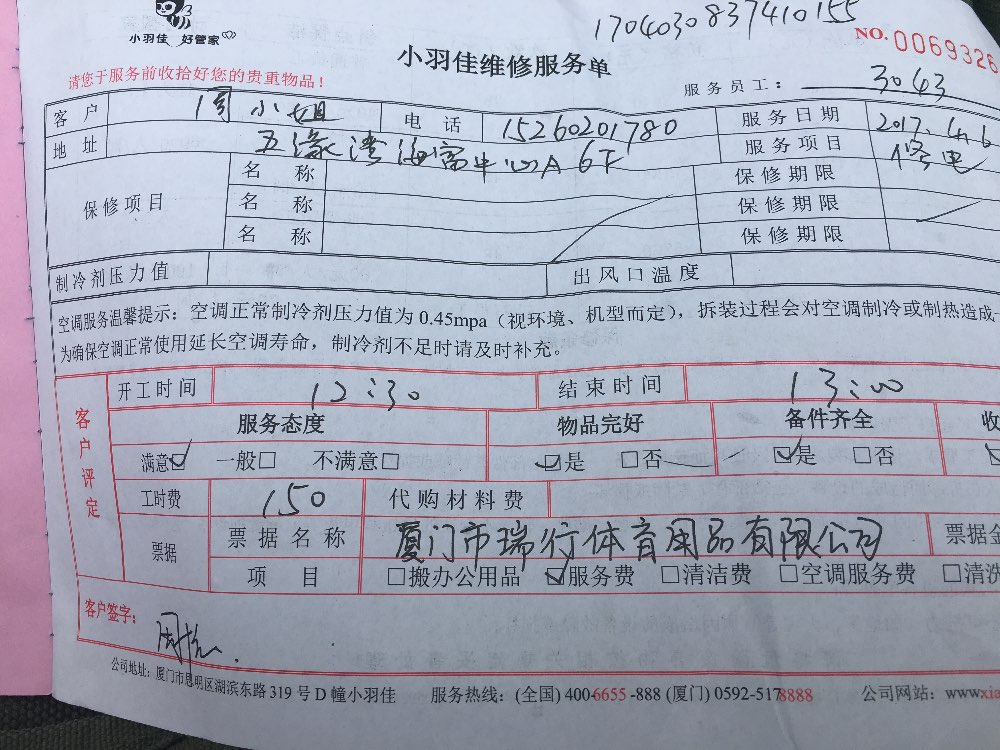 小羽佳 好管家
1704030837410155
NO. 0069326
小羽佳维修服务单
请您于服务前收拾好您的贵重物品！
服务员工： 3043
客户 周小姐 电话 15260201780 服务日期 2017.4.6
地址 五缘湾海富中心A 6F 服务项目 修电
保修项目 名称 保修期限
名称 保修期限
名称 保修期限
制冷剂压力值 出风口温度
空调服务温馨提示：空调正常制冷剂压力值为 0.45mpa（视环境、机型而定），拆装过程会对空调制冷或制热造成
为确保空调正常使用延长空调寿命，制冷剂不足时请及时补充。
客户评定
开工时间 12:30 结束时间 13:00
服务态度 物品完好 备件齐全 收
满意☑ 一般□ 不满意□ ☑是 □否 ☑是 □否
工时费 150 代购材料费
票据 票据名称 厦门市瑞行体育用品有限公司 票据金
项目 □搬办公用品 ☑服务费 □清洁费 □空调服务费 □清洗
客户签字：
公司地址：厦门市思明区湖滨东路 319 号 D 幢小羽佳 服务热线：(全国) 400-6655-888 (厦门) 0592-5178888 公司网站：www.xia